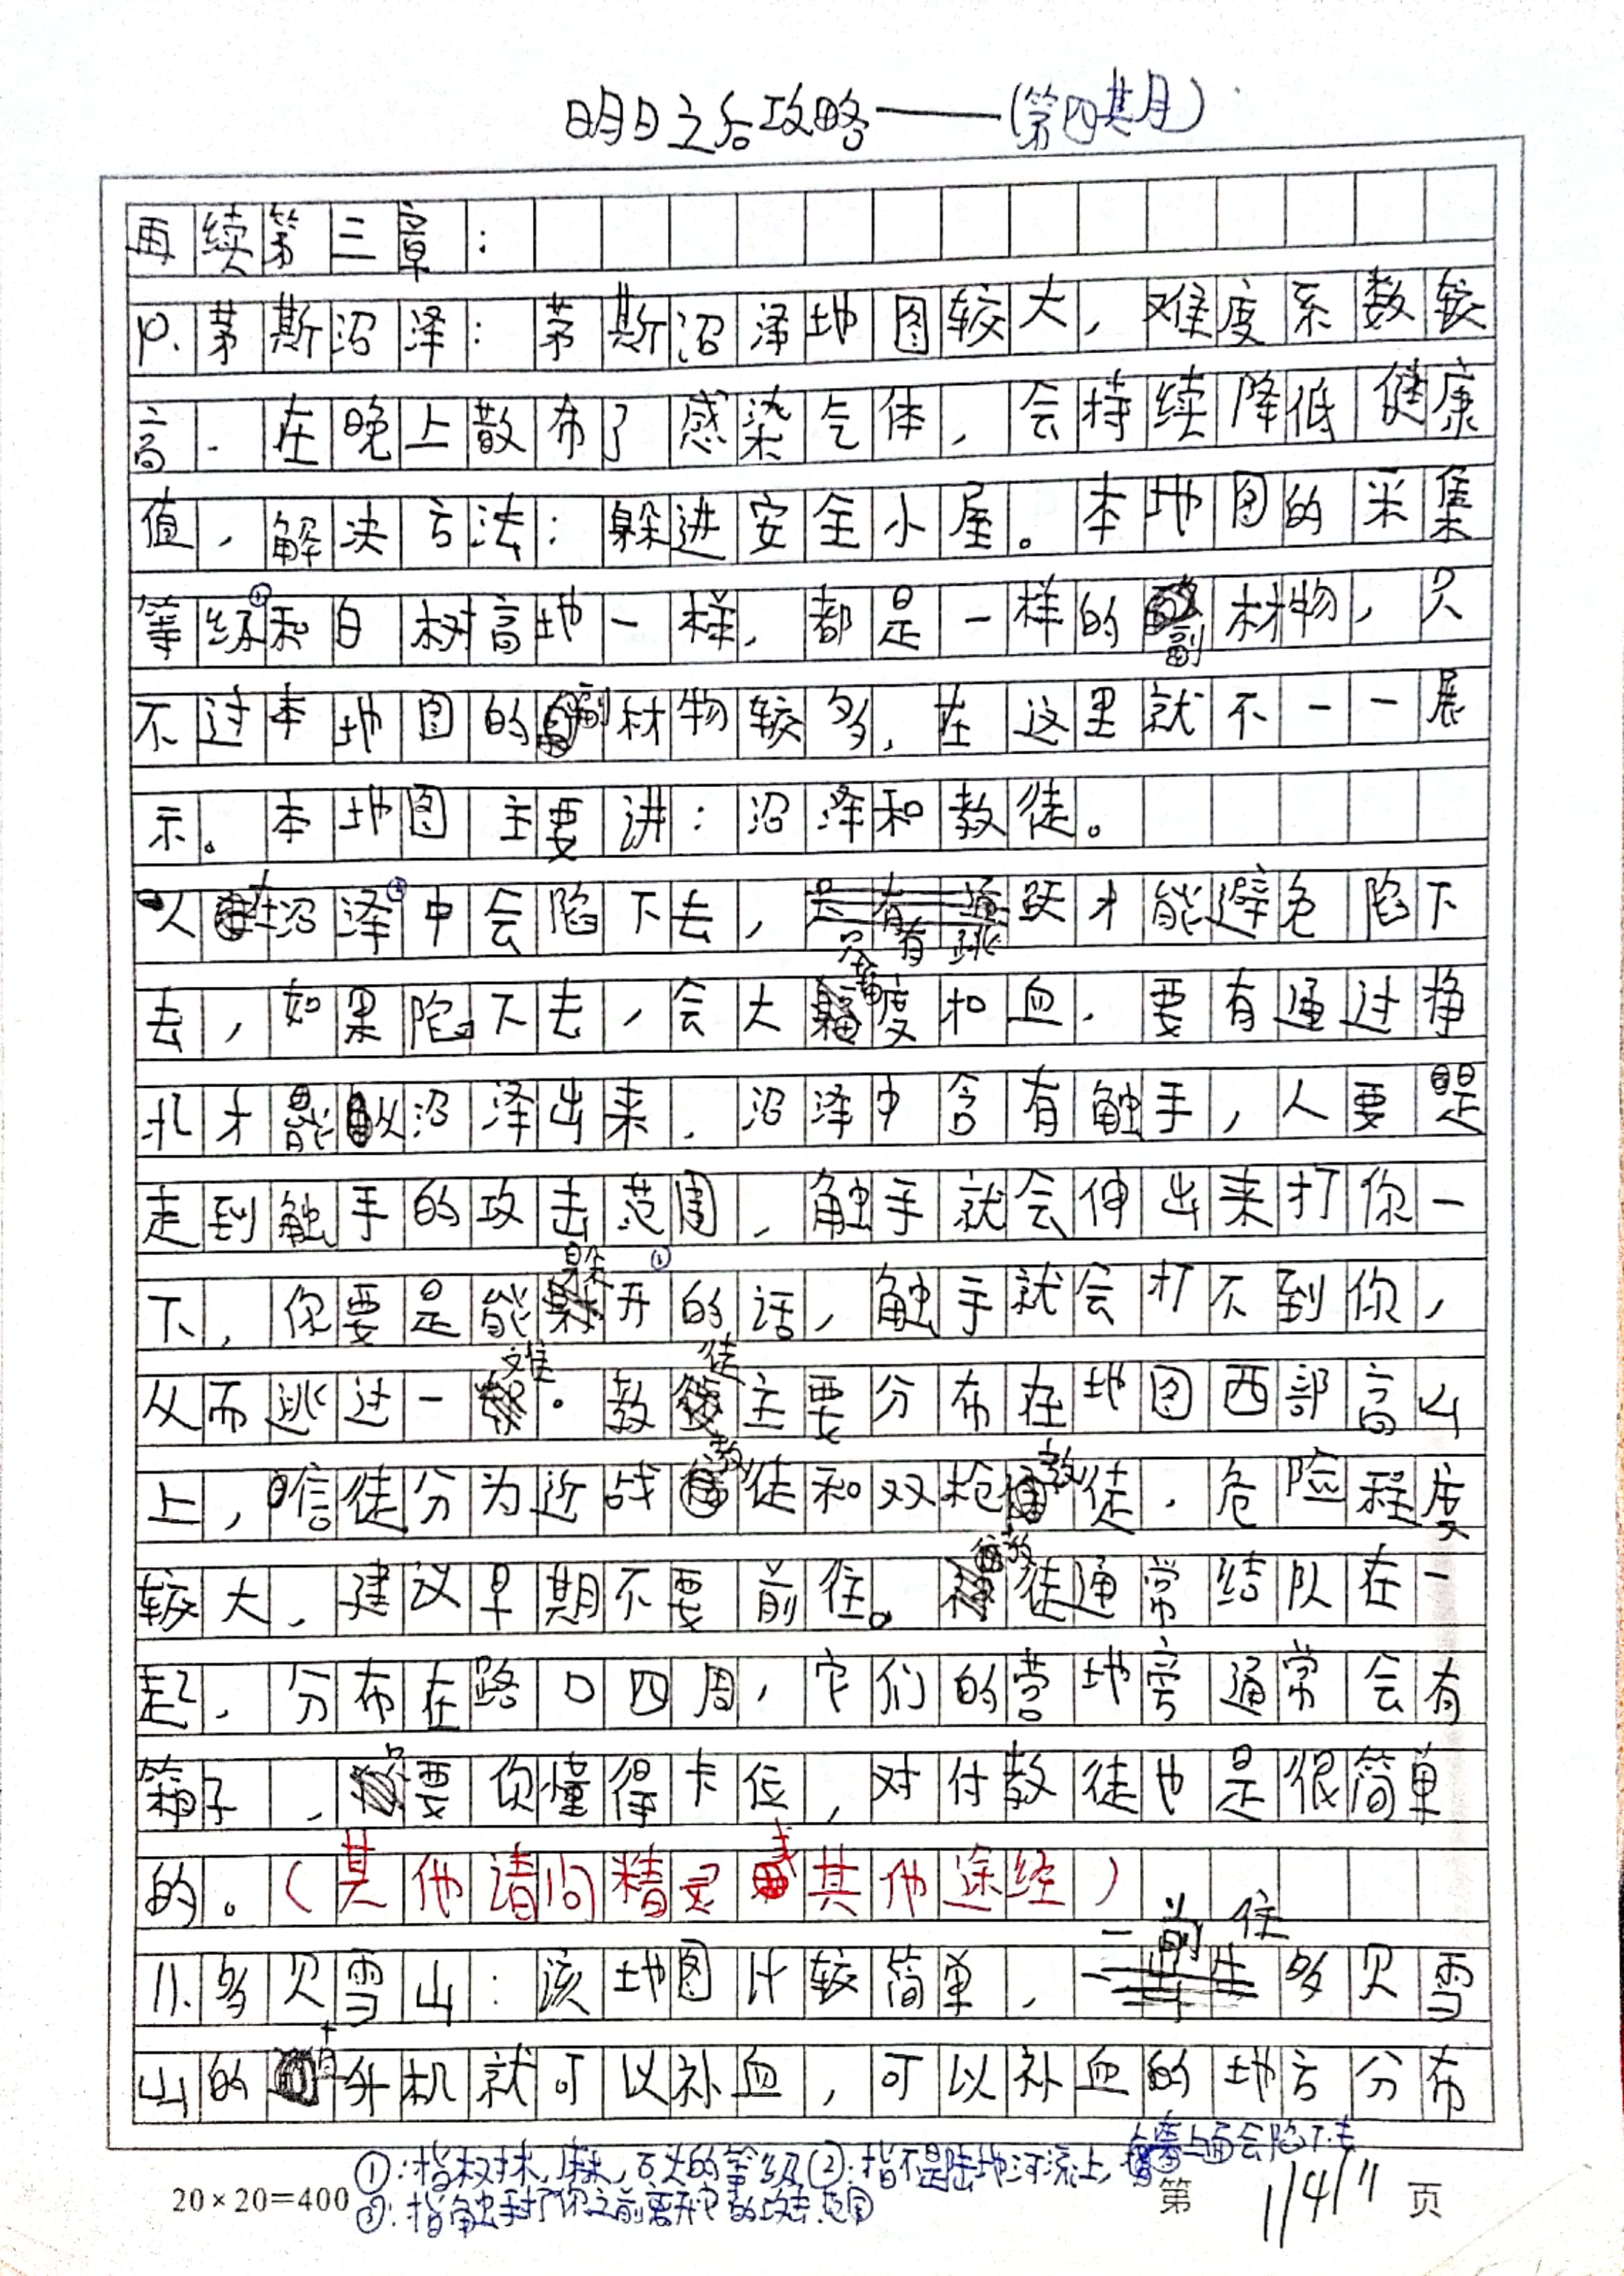 明日之后攻略——(第四期)
再续第三章:
10.茅斯沼泽:茅斯沼泽地图较大,难度系数较
高.在晚上散布了感染气体,会持续降低健康
值,解决方法:躲进安全小屋。本地图的采集
等级①和白树高地一样,都是一样的副材物,只
不过本地图的副材物较多,在这里就不一一展
示。本地图主要讲:沼泽和教徒。
人在沼泽②中会陷下去,只有跳跃才能避免陷下
去,如果陷下去,会大幅度扣血,要有通过挣
扎才能从沼泽出来,沼泽中含有触手,人要是
走到触手的攻击范围,触手就会伸出来打你一
下,你要是能躲开③的话,触手就会打不到你,
从而逃过一难.教徒主要分布在地图西部高山
上,信徒分为近战教徒和双枪教徒,危险程度
较大,建议早期不要前往。教徒通常结队在一
起,分布在路口四周,它们的营地旁通常会有
箱子,只要你懂得卡位,对付教徒也是很简单
的。(其他请问精灵或其他途经)
11.多贝雪山:该地图比较简单,一前往多贝雪
山的直升机就可以补血,可以补血的地方分布
①:指树木,麻,石头的等级②:指不是陆地河流上,上面会陷下去
③:指触手打你之前离开它的攻击范围
20×20=400
第1/4/11页